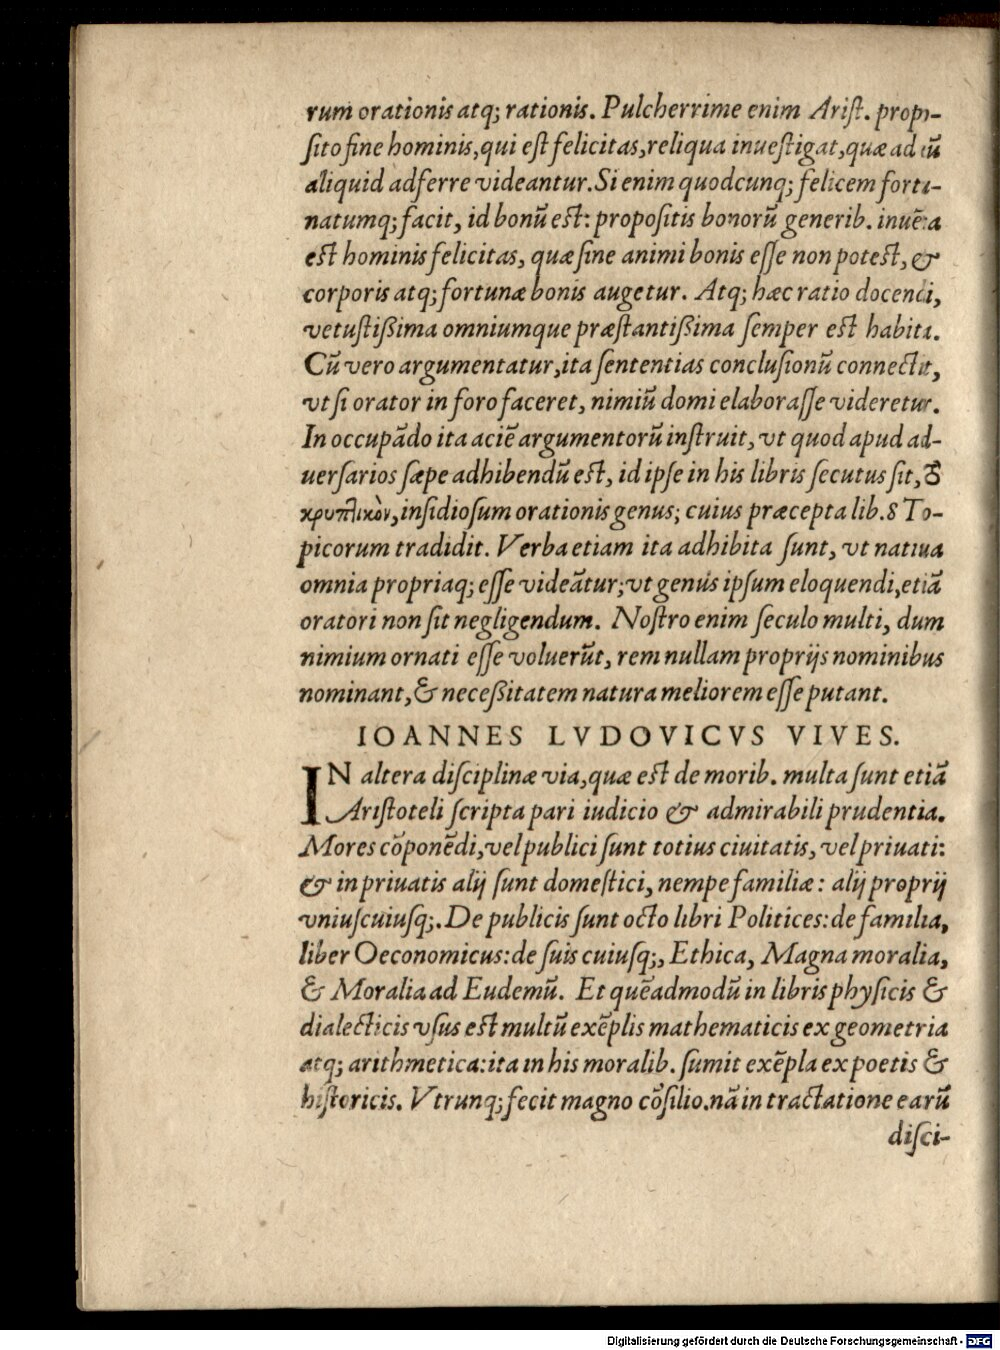 rum orationis atq; rationis. Pulcherrime enim Arist. propo-
sito fine hominis, qui est felicitas, reliqua inuestigat, quæ ad eū
aliquid adferre videantur. Si enim quodcunq; felicem fortu-
natumq; facit, id bonū est: propositis bonorū generib. inuēta
est hominis felicitas, quæ sine animi bonis esse non potest, &
corporis atq; fortunæ bonis augetur. Atq; hæc ratio docendi,
vetustißima omniumque præstantißima semper est habita.
Cū vero argumentatur, ita sententias conclusionū connectit,
vt si orator in foro faceret, nimiū domi elaborasse videretur.
In occupādo ita aciē argumentorū instruit, vt quod apud ad-
uersarios sæpe adhibendū est, id ipse in his libris secutus sit, τὸ
κρυπτικὸν, insidiosum orationis genus; cuius præcepta lib. 8 To-
picorum tradidit. Verba etiam ita adhibita sunt, vt natiua
omnia propriaq; esse videātur; vt genus ipsum eloquendi, etiā
oratori non sit negligendum. Nostro enim seculo multi, dum
nimium ornati esse voluerūt, rem nullam proprijs nominibus
nominant, & neceßitatem natura meliorem esse putant.
IOANNES LVDOVICVS VIVES.
IN altera disciplinæ via, quæ est de morib. multa sunt etiā
Aristoteli scripta pari iudicio & admirabili prudentia.
Mores cōponēdi, vel publici sunt totius ciuitatis, vel priuati:
& in priuatis alij sunt domestici, nempe familiæ: alij proprij
vniuscuiusq;. De publicis sunt octo libri Politices: de familia,
liber Oeconomicus: de suis cuiusq;, Ethica, Magna moralia,
& Moralia ad Eudemū. Et quēadmodū in libris physicis &
dialecticis vsus est multū exēplis mathematicis ex geometria
atq; arithmetica: ita in his moralib. sumit exēpla ex poetis &
historicis. Vtrunq; fecit magno cōsilio. nā in tractatione earū
disci-
Digitalisierung gefördert durch die Deutsche Forschungsgemeinschaft - DFG